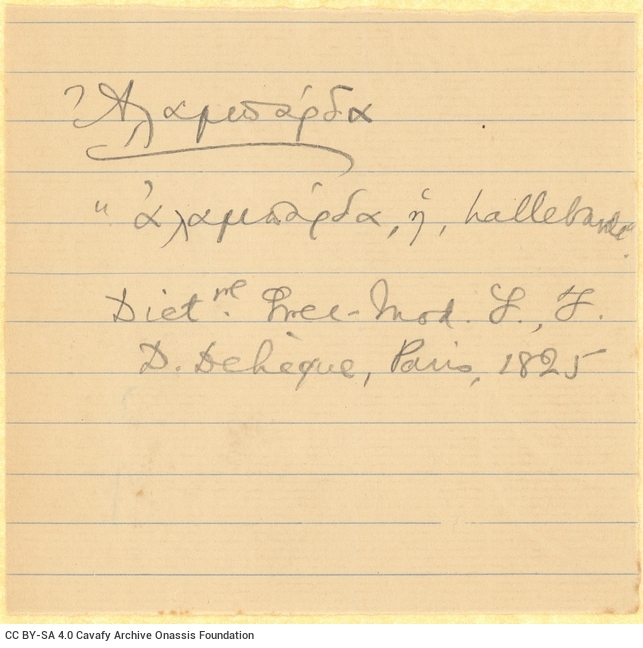 Ἀλαμπάρδα
“ ἀλαμπάρδα, ἡ, hallebarde”.
Dictre. Grec-Mod. F., F.
D. Dehèque, Paris, 1825
CC BY-SA 4.0 Cavafy Archive Onassis Foundation